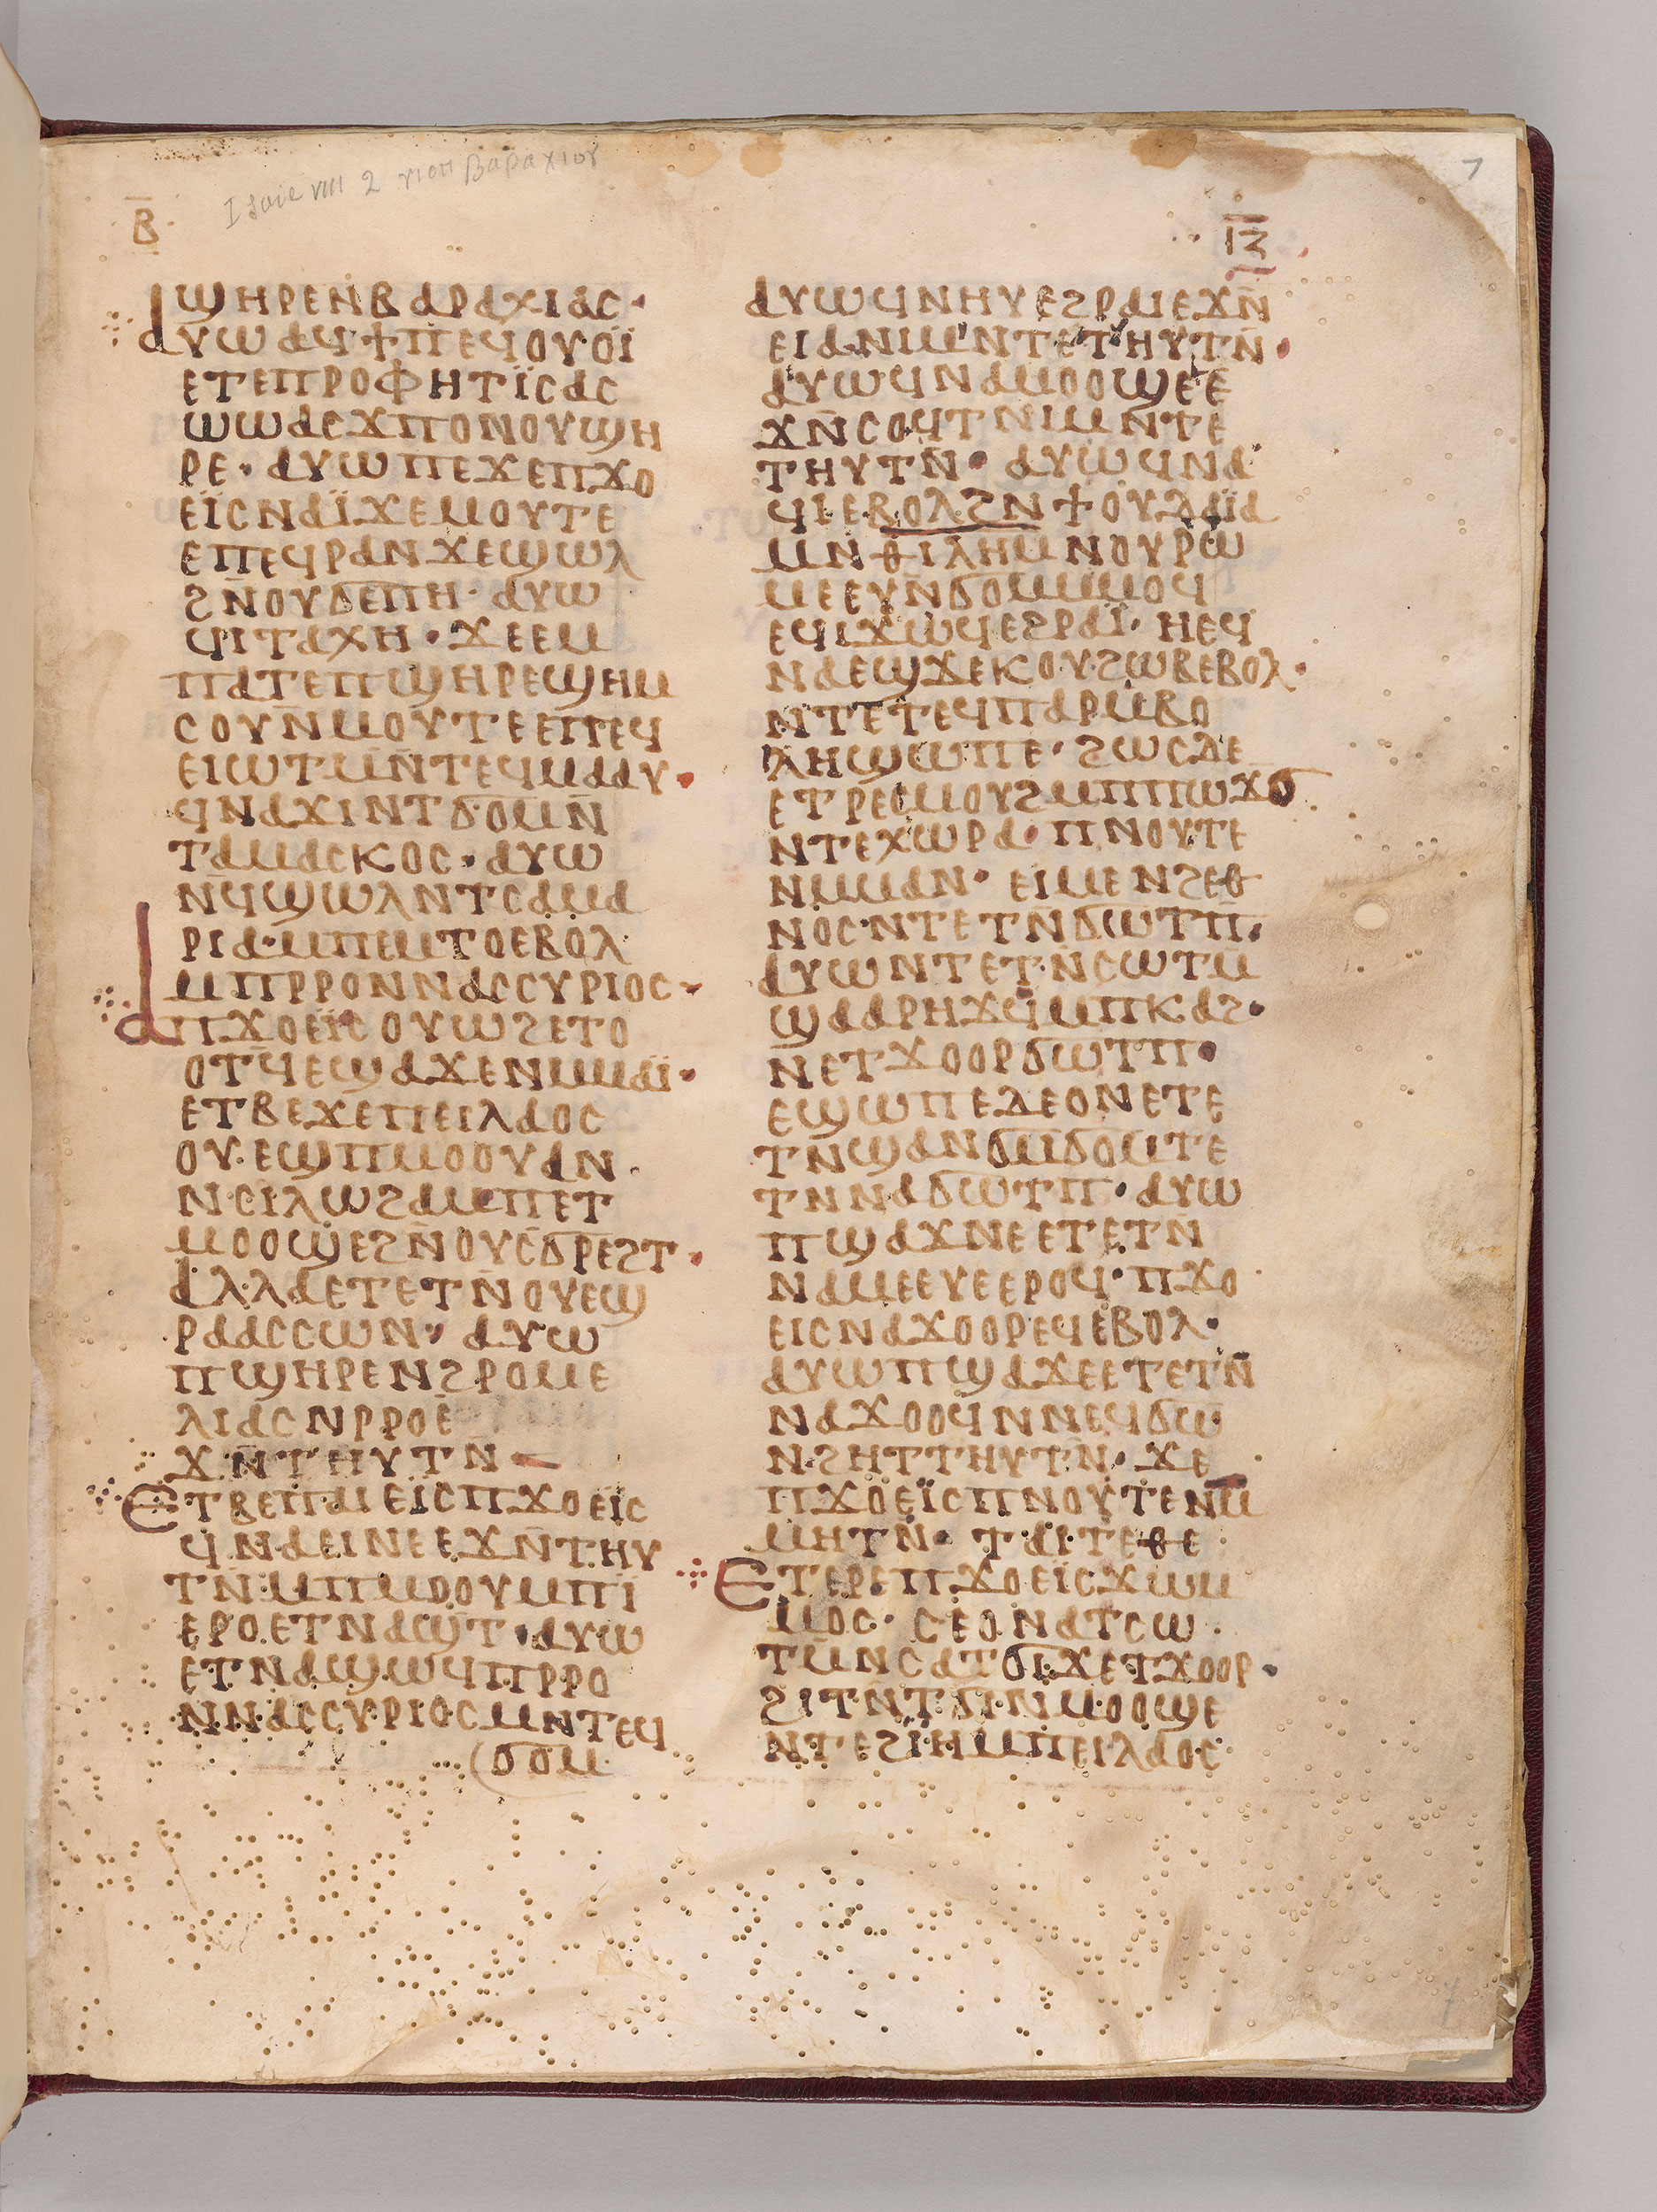 7
Isaie VIII 2 υιον Βαραχιου
Ⲃ̄
ⲒⲌ̄
ϢⲎⲢⲈⲚⲂⲀⲢⲀⲬⲒⲀⲤ·
ⲀⲨⲰⲀϤϮⲠⲈϤⲞⲨⲞⲒ̈
ⲈⲦⲈⲠⲢⲞⲪⲎⲦⲒ̈ⲤⲀⲤ
ⲰⲰⲀⲤϪⲠⲞⲚⲞⲨϢⲎ
ⲢⲈ· ⲀⲨⲰⲠⲈϪⲈⲠϪⲞ
ⲈⲒ̈ⲤⲚⲀⲒ̈ϪⲈⲘⲞⲨⲦⲈ
ⲈⲠⲈϤⲢⲀⲚϪⲈϢⲰⲖ
ϨⲚ̄ⲞⲨϬⲈⲠⲎ· ⲀⲨⲰ
ϤⲒⲦⲀⲬⲎ· ϪⲈⲈⲘ
ⲠⲀⲦⲈⲠϢⲎⲢⲈϢⲎⲘ
ⲤⲞⲨⲚ̄ⲘⲞⲨⲦⲈⲈⲠⲈϤ
ⲈⲒⲰⲦⲘⲚ̄ⲦⲈϤⲘⲀⲀⲨ·
ϤⲚⲀϪⲒⲚⲦϬⲞⲘⲚ̄
ⲦⲀⲘⲀⲤⲔⲞⲤ· ⲀⲨⲰ
Ⲛ̄ϤϢⲰⲖⲚⲦⲤⲀⲘⲀ
ⲢⲒⲀ·ⲘⲠⲈⲘⲦⲞⲈⲂⲞⲖ
ⲘⲠⲢⲢⲞⲚⲚⲀⲤⲤⲨⲢⲒⲞⲤ·
ⲀⲠϪⲞⲈⲒ̈ⲤⲞⲨⲰϨⲈⲦⲞ
ⲞⲦϤ̄ⲈϢⲀϪⲈⲚⲘⲘⲀⲒ̈·
ⲈⲦⲂⲈϪⲈⲠⲈⲒⲖⲀⲞⲤ
ⲞⲨ·ⲈϢⲠⲘⲞⲞⲨⲀⲚ
Ⲛ·ⲤⲒⲖⲰϨⲀⲘⲠⲈⲦ
ⲘⲞⲞϢⲈϨⲚ̄ⲞⲨⲤϬⲢⲈϨⲦ·
ⲀⲖ·ⲖⲀⲈⲦⲈⲦⲚ̄ⲞⲨⲈϢ
ⲢⲀⲀⲤⲤⲰⲚ· ⲀⲨⲰ
ⲠϢⲎⲢⲈⲚϨⲢⲞⲘⲈ
ⲖⲒⲀⲤⲚⲢⲢⲞⲈ̄
ϪⲚ̄ⲦⲎⲨⲦⲚ̄
ⲈⲦⲂⲈⲠⲀⲒⲈⲒⲤⲠϪⲞⲈⲒ̈Ⲥ
ϤⲚⲀⲈⲒⲚⲈⲈϪⲚ̄ⲦⲎⲨ
ⲦⲚ̄ⲘⲠⲘⲞⲞⲨⲘⲠⲒ̈
ⲈⲢⲞⲈⲦⲚⲀϢⲦ·ⲀⲨⲰ
ⲈⲦⲚⲀϢⲰϤⲠⲢⲢⲞ
ⲚⲚⲀⲤⲤⲨⲢⲒⲞⲤⲘⲚⲦⲈϤ
(ϬⲞⲘ
ⲀⲨⲰϤⲚⲎⲨⲈϨⲢⲀⲒⲈϪⲚ̄
ⲈⲒⲀⲚⲒⲘⲚⲦⲈⲦⲎⲨⲦⲚ̄·
ⲀⲨⲰϤⲚⲀⲘⲞⲞϢⲈⲈ
ϪⲚ̄ⲤⲞϤⲦⲚⲒⲘⲚ̄ⲦⲈ
ⲦⲎⲨⲦⲚ̄· ⲀⲨⲰϤⲚⲀ
ϤⲒⲈⲂⲞⲖϨⲚϮⲞⲨⲆⲀⲒ̈Ⲁ
ⲘⲚⲪⲒⲖⲎⲘⲚⲞⲨⲢⲰ
ⲘⲈⲈⲨⲚ̄ϬⲞⲘⲘⲘⲞϤ
ⲈϤⲒϪⲰϤⲈϨⲢⲀⲒ̈· ⲎⲈϤ
ⲚⲀⲈϢϪⲈⲔⲞⲨ·ϨⲰⲂⲈⲂⲞⲖ·
ⲚⲦⲈⲦⲈϤⲠⲀⲢⲘⲂⲞ
ⲖⲎϢⲰⲠⲈ· ϨⲰⲤⲆⲈ
ⲈⲦⲢⲈⲤⲘⲞⲨϨⲘⲠⲠⲰϪϬ
ⲚⲦⲈⲬⲰⲢⲀ· ⲠⲚⲞⲨⲦⲈ
ⲚⲘⲘⲀⲚ· ⲈⲒⲘⲈⲚϨⲈⲐ
ⲚⲞⲤ·ⲚⲦⲈⲦⲚ̄ϬⲰⲦⲠ̄·
ⲀⲨⲰⲚⲦⲈⲦⲚ̄ⲤⲰⲦⲘ
ϢⲀⲀⲢⲎϪϤ̄ⲘⲠⲔⲀϨ·
ⲚⲈⲦϪⲞⲞⲢϬⲰⲦⲠ·
ⲈϢⲰⲠⲈⲆⲈⲞⲚⲈⲦⲈ
ⲦⲚ̄ϢⲀⲚϬⲘϬⲞⲘⲦⲈ
ⲦⲚⲚⲀϬⲰⲦⲠ· ⲀⲨⲰ
ⲠϢⲀϪⲚⲈⲈⲦⲈⲦⲚ̄
ⲚⲀⲘⲈⲈⲨⲈⲈⲢⲞϤ·ⲠϪⲞ
ⲈⲒⲤⲚⲀϪⲞⲞⲢⲈϤⲈⲂⲞⲖ·
ⲀⲨⲰⲠϢⲀϪⲈⲈⲦⲈⲦⲚ̄
ⲚⲀϪⲞⲞϤⲚⲚⲈϤϬⲰ
Ⲛ·ϨⲎⲦⲦⲎⲨⲦⲚ̄· ϪⲈ
ⲠϪⲞⲈⲒ̈ⲤⲠⲚⲞⲨⲦⲈⲚⲘ̄
ⲘⲎⲦⲚ̄· ⲦⲀⲒ·ⲦⲈⲐⲈ
ⲈⲦⲈⲢⲈⲠϪⲞⲈⲒ̈ⲤϪⲰⲘ
ⲘⲞⲤ· ⲤⲈⲞⲚⲀⲦⲤⲰ
ⲦⲘⲚⲤⲀⲦϬⲒϪⲈⲦϪⲞⲞⲢ·
ϨⲒⲦⲚ̄ⲦϬⲒⲚⲘⲞⲞϢⲈ
ⲚⲦⲈϨⲒ̈ⲎⲘⲠⲈⲒⲖⲀⲞⲤ